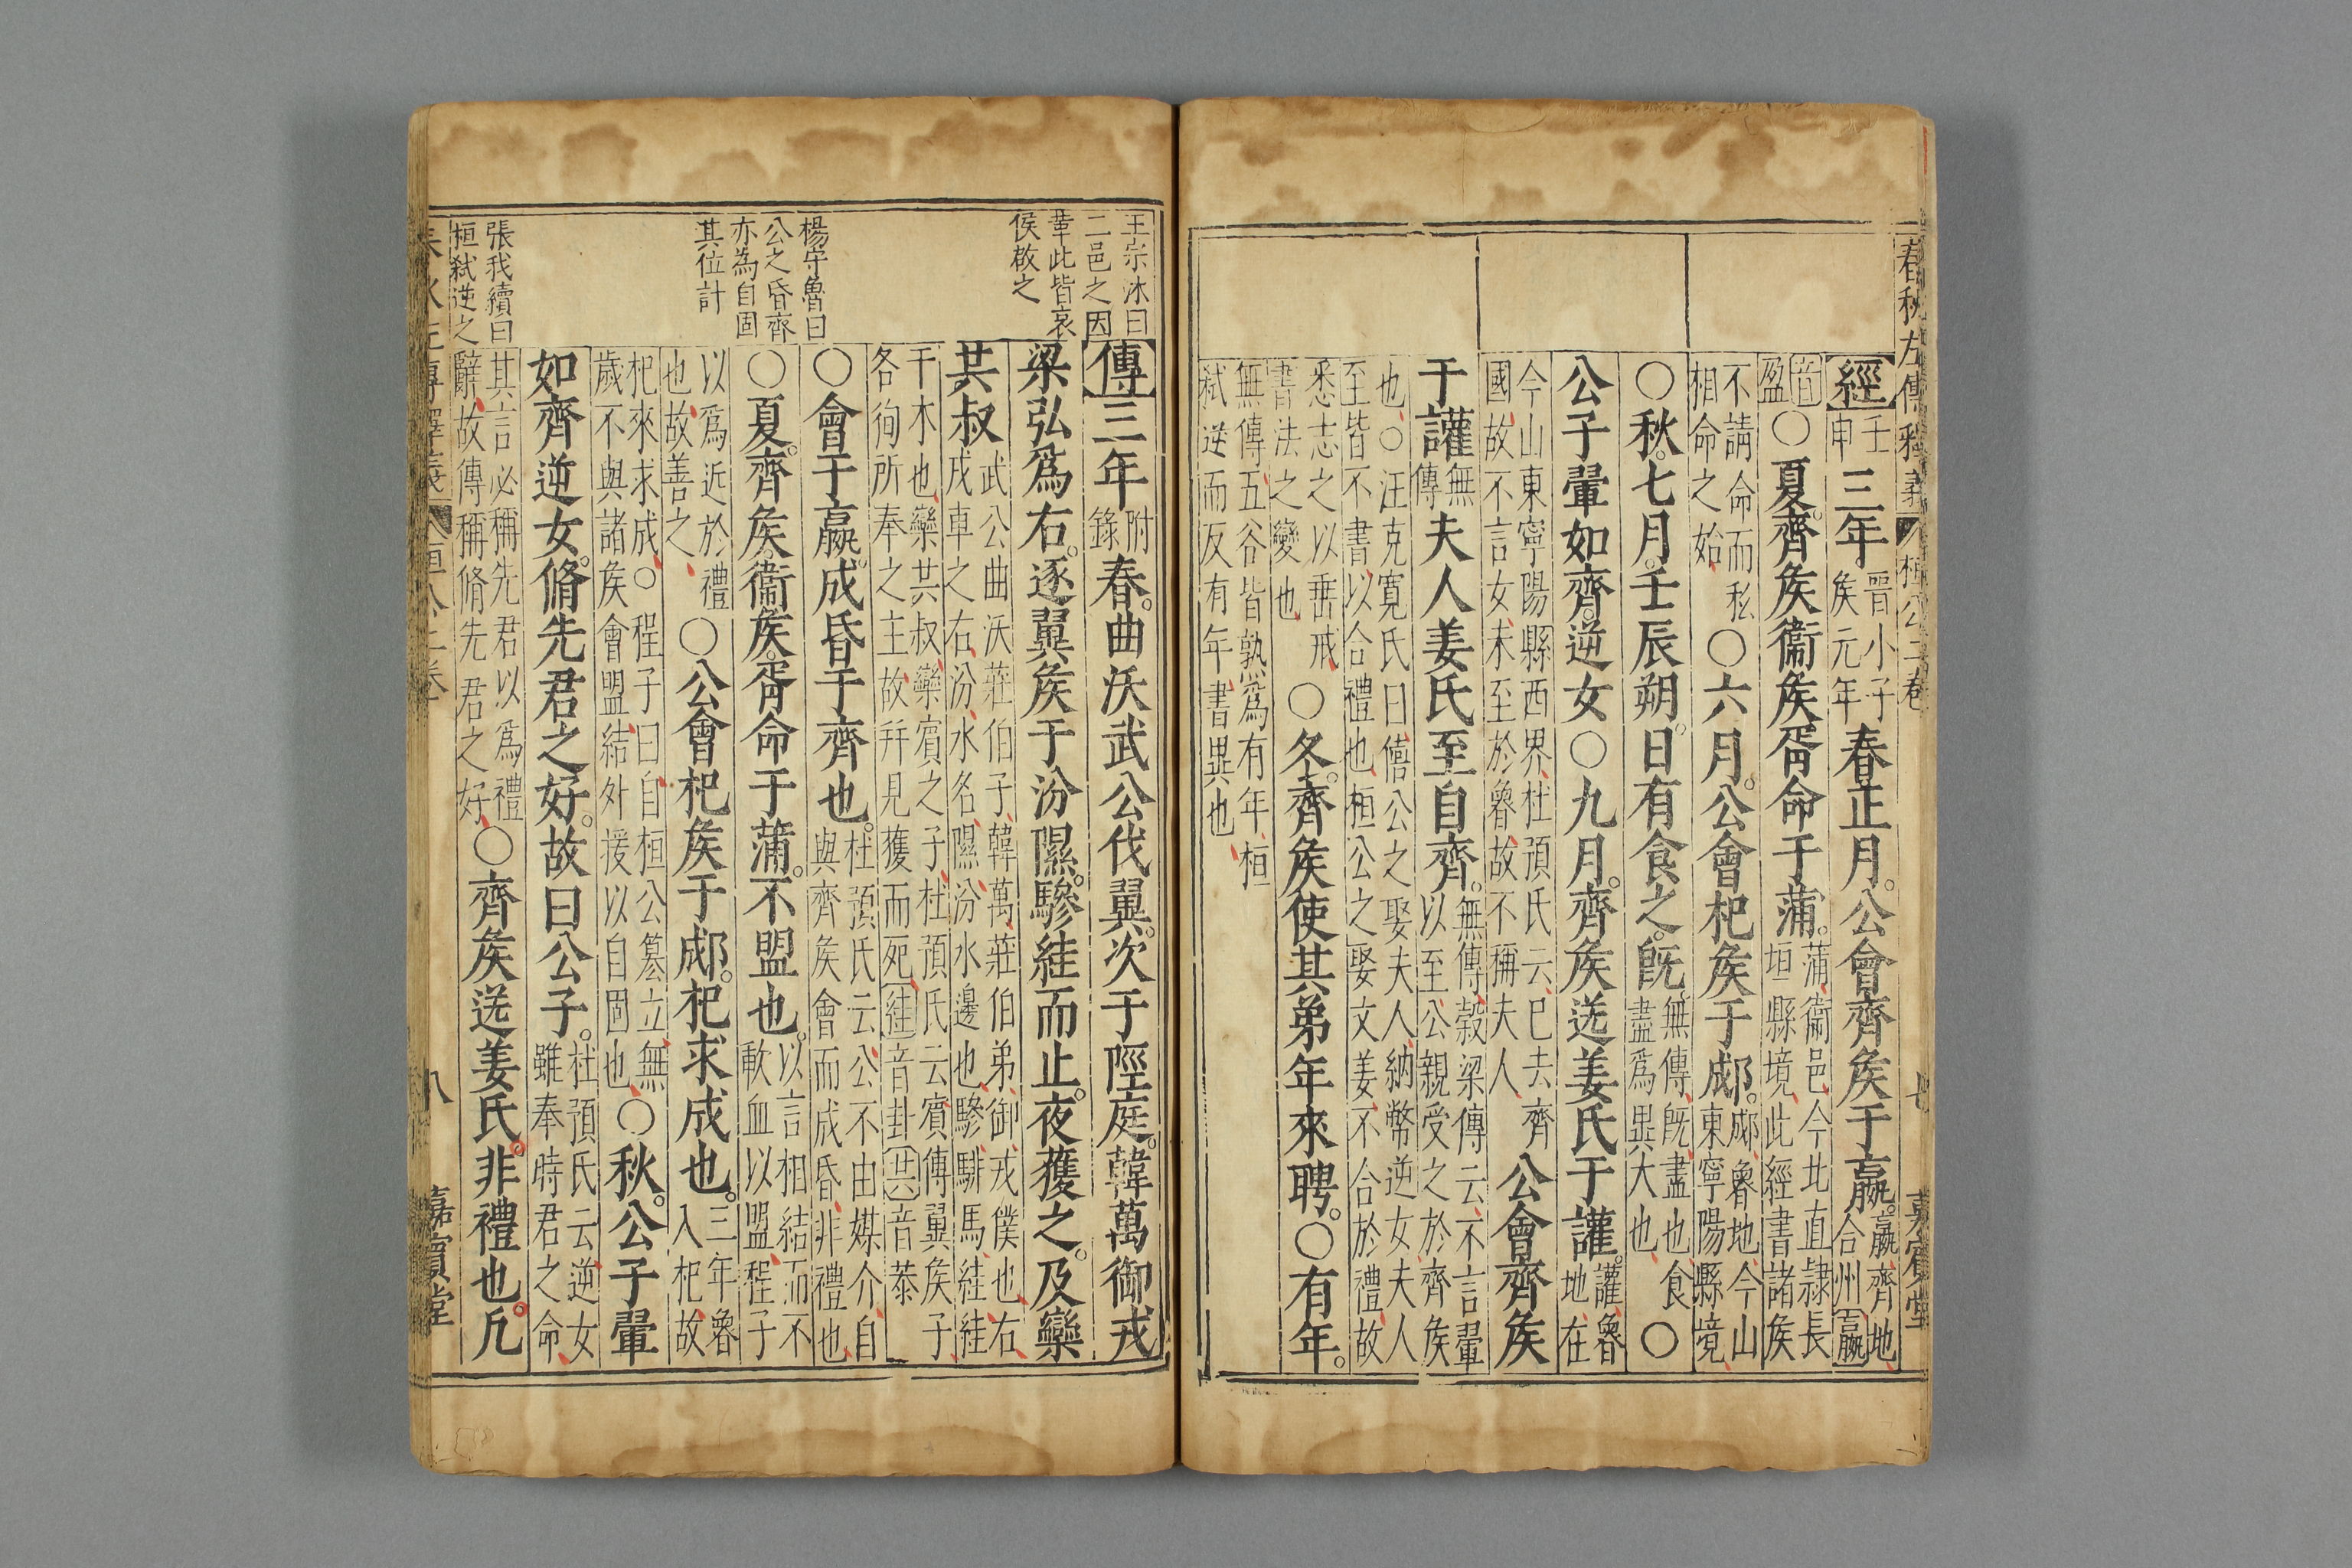 春秋左傳釋義 桓公二卷 七 嘉賓堂
經壬申三年晉小子矦元年春正月。公會齊矦于嬴。嬴、齊地、合州嬴
音盈○夏。齊矦衞矦胥命于蒲。蒲、衞邑、今北直隷長垣縣境、此經書諸矦
不請命而私相命之始、○六月。公會杞矦于郕。郕、魯地、今山東寧陽縣境、
○秋。七月。壬辰朔。日有食之。旣。無傳、旣、盡也、食盡爲異大也、○
公子翬如齊。逆女○九月。齊矦送姜氏于讙。讙、魯地、在
今山東寧陽縣西界、杜預氏云、已去齊國、故不言女、未至於魯、故不稱夫人、公會齊矦
于讙無傳夫人姜氏至自齊。無傳、榖梁傳云、不言翬以至、公親受之於齊矦
也、○汪克寬氏曰、僖公之娶夫人、納幣逆女夫人至皆不書、以合禮也、桓公之娶文姜、不合於禮、故
悉志之、以垂戒、書法之變也、○冬。齊矦使其弟年來聘。○有年。
無傳、五谷皆孰爲有年、桓弑逆而反有年、書異也、
王宗沐曰
二邑之因
華此皆哀
侯啟之
楊守魯曰
公之昏齊
亦為自固
其位計
張我續曰
桓弑逆之
傳三年附錄春。曲沃武公伐翼。次于陘庭。韓萬御戎
梁弘爲右。逐翼矦于汾隰。驂絓而止。夜獲之。及欒
共叔武公曲沃莊伯子、韓萬、莊伯弟、御、戎僕也、右、戎車之右、汾、水名、隰、汾水邊也、驂、騑馬、絓、絓
于木也、欒共叔、欒賓之子、杜預氏云、賓傳翼矦、子各徇所奉之主、故幷見獲而死、絓音卦共音恭
○會于嬴。成昏于齊也。杜預氏云、公不由媒介、自與齊矦會而成昏、非禮也、
○夏。齊矦。衞矦。胥命于蒲。不盟也。以言相結、而不歃血以盟、程子
以爲近於禮也、故善之、○公會杞矦于郕。杞求成也。二年、魯入杞、故
杞來求成、○程子曰、自桓公簒立、無歲不與諸矦會盟、結外援以自固也、○秋。公子翬
如齊逆女。脩先君之好。故曰公子。杜預氏云、逆女雖奉時君之命、
其言必稱先君以爲禮辭、故傳稱脩先君之好、○齊矦送姜氏。非禮也。凡
八 嘉賓堂